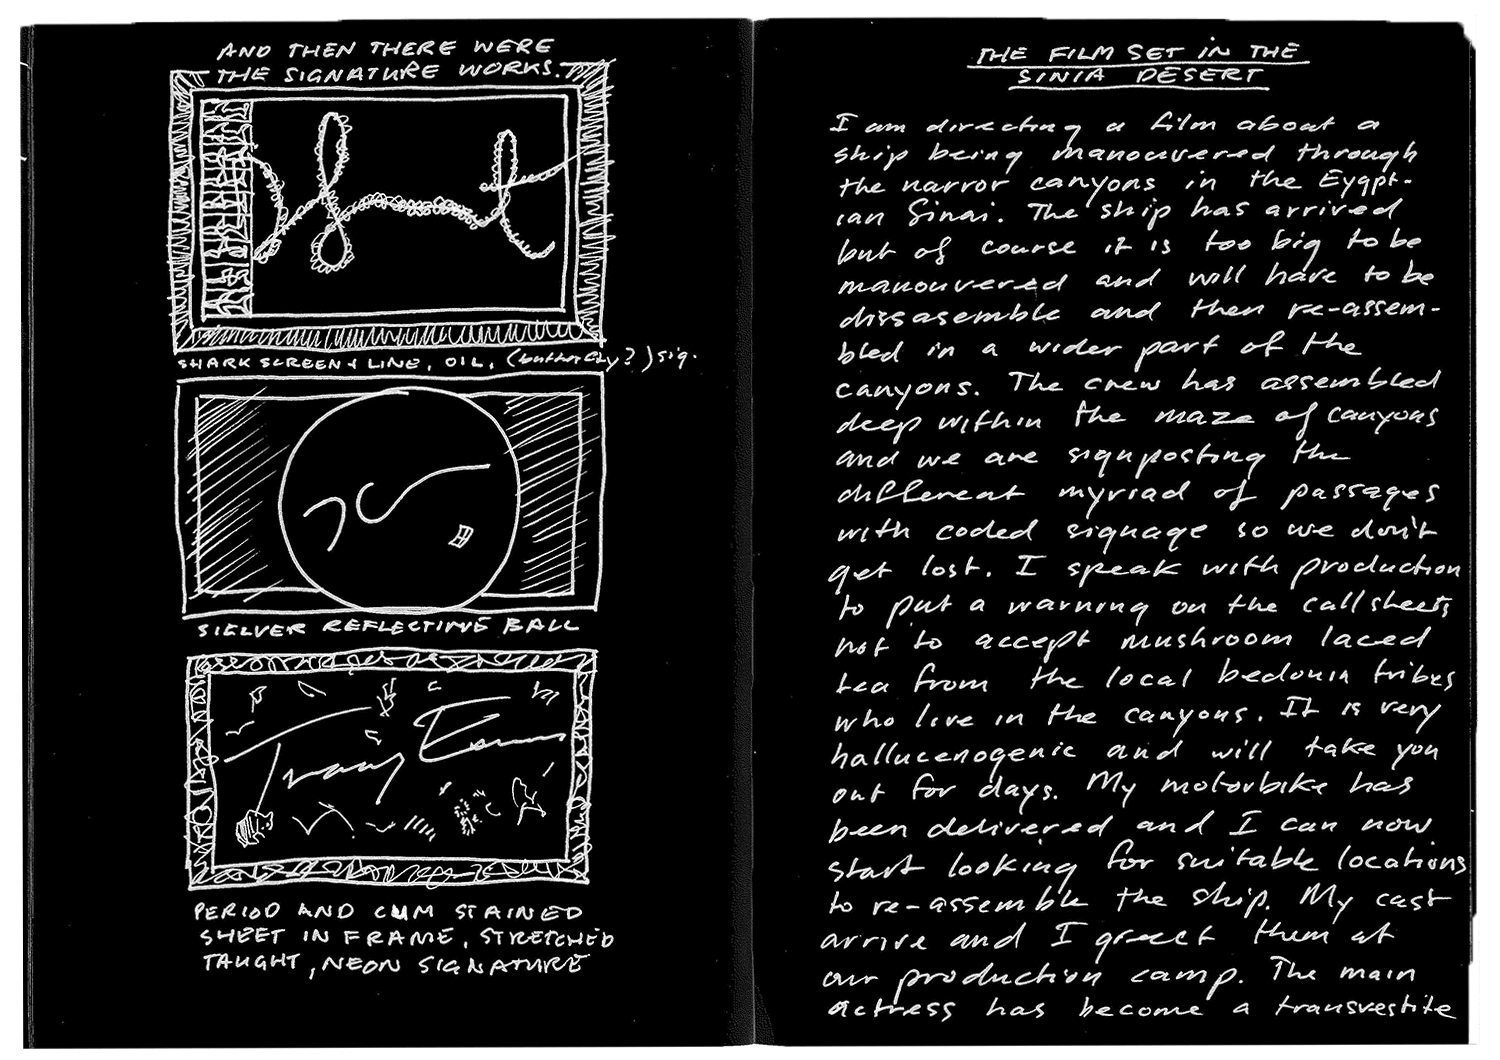 AND THEN THERE WERE
THE SIGNATURE WORKS.
SHARK SCREEN + LINE, OIL, (butterfly?) sig.
SIELVER REFLECTIVE BALL
Tracy Emin
PERIOD AND CUM STAINED
SHEET IN FRAME, STRETCHED
TAUGHT, NEON SIGNATURE
THE FILM SET IN THE
SINIA DESERT
I am directing a film about a
ship being manouvered through
the narror canyons in the Eygpt-
ian Sinai. The ship has arrived
but of course it is too big to be
manouvered and will have to be
dissasemble and then re-assem-
bled in a wider part of the
canyons. The crew has assembled
deep within the maze of canyons
and we are signposting the
different myriad of passages
with coded signage so we don't
get lost. I speak with production
to put a warning on the callsheets
not to accept mushroom laced
tea from the local bedouin tribes
who live in the canyons. It is very
hallucenogenic and will take you
out for days. My motorbike has
been delivered and I can now
start looking for suitable locations
to re-assemble the ship. My cast
arrive and I greet them at
our production camp. The main
actress has become a transvestite